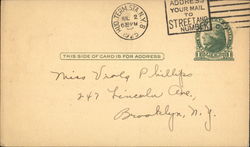 HUD. TERM. STA. N.Y.
JUL 2
630PM
ADDRESS
YOUR MAIL
TO
STREET AND
NUMBER
THIS SIDE OF CARD IS FOR ADDRESS
Miss Viola Phillips
247 Lincoln Ave,
Brooklyn, N.Y.